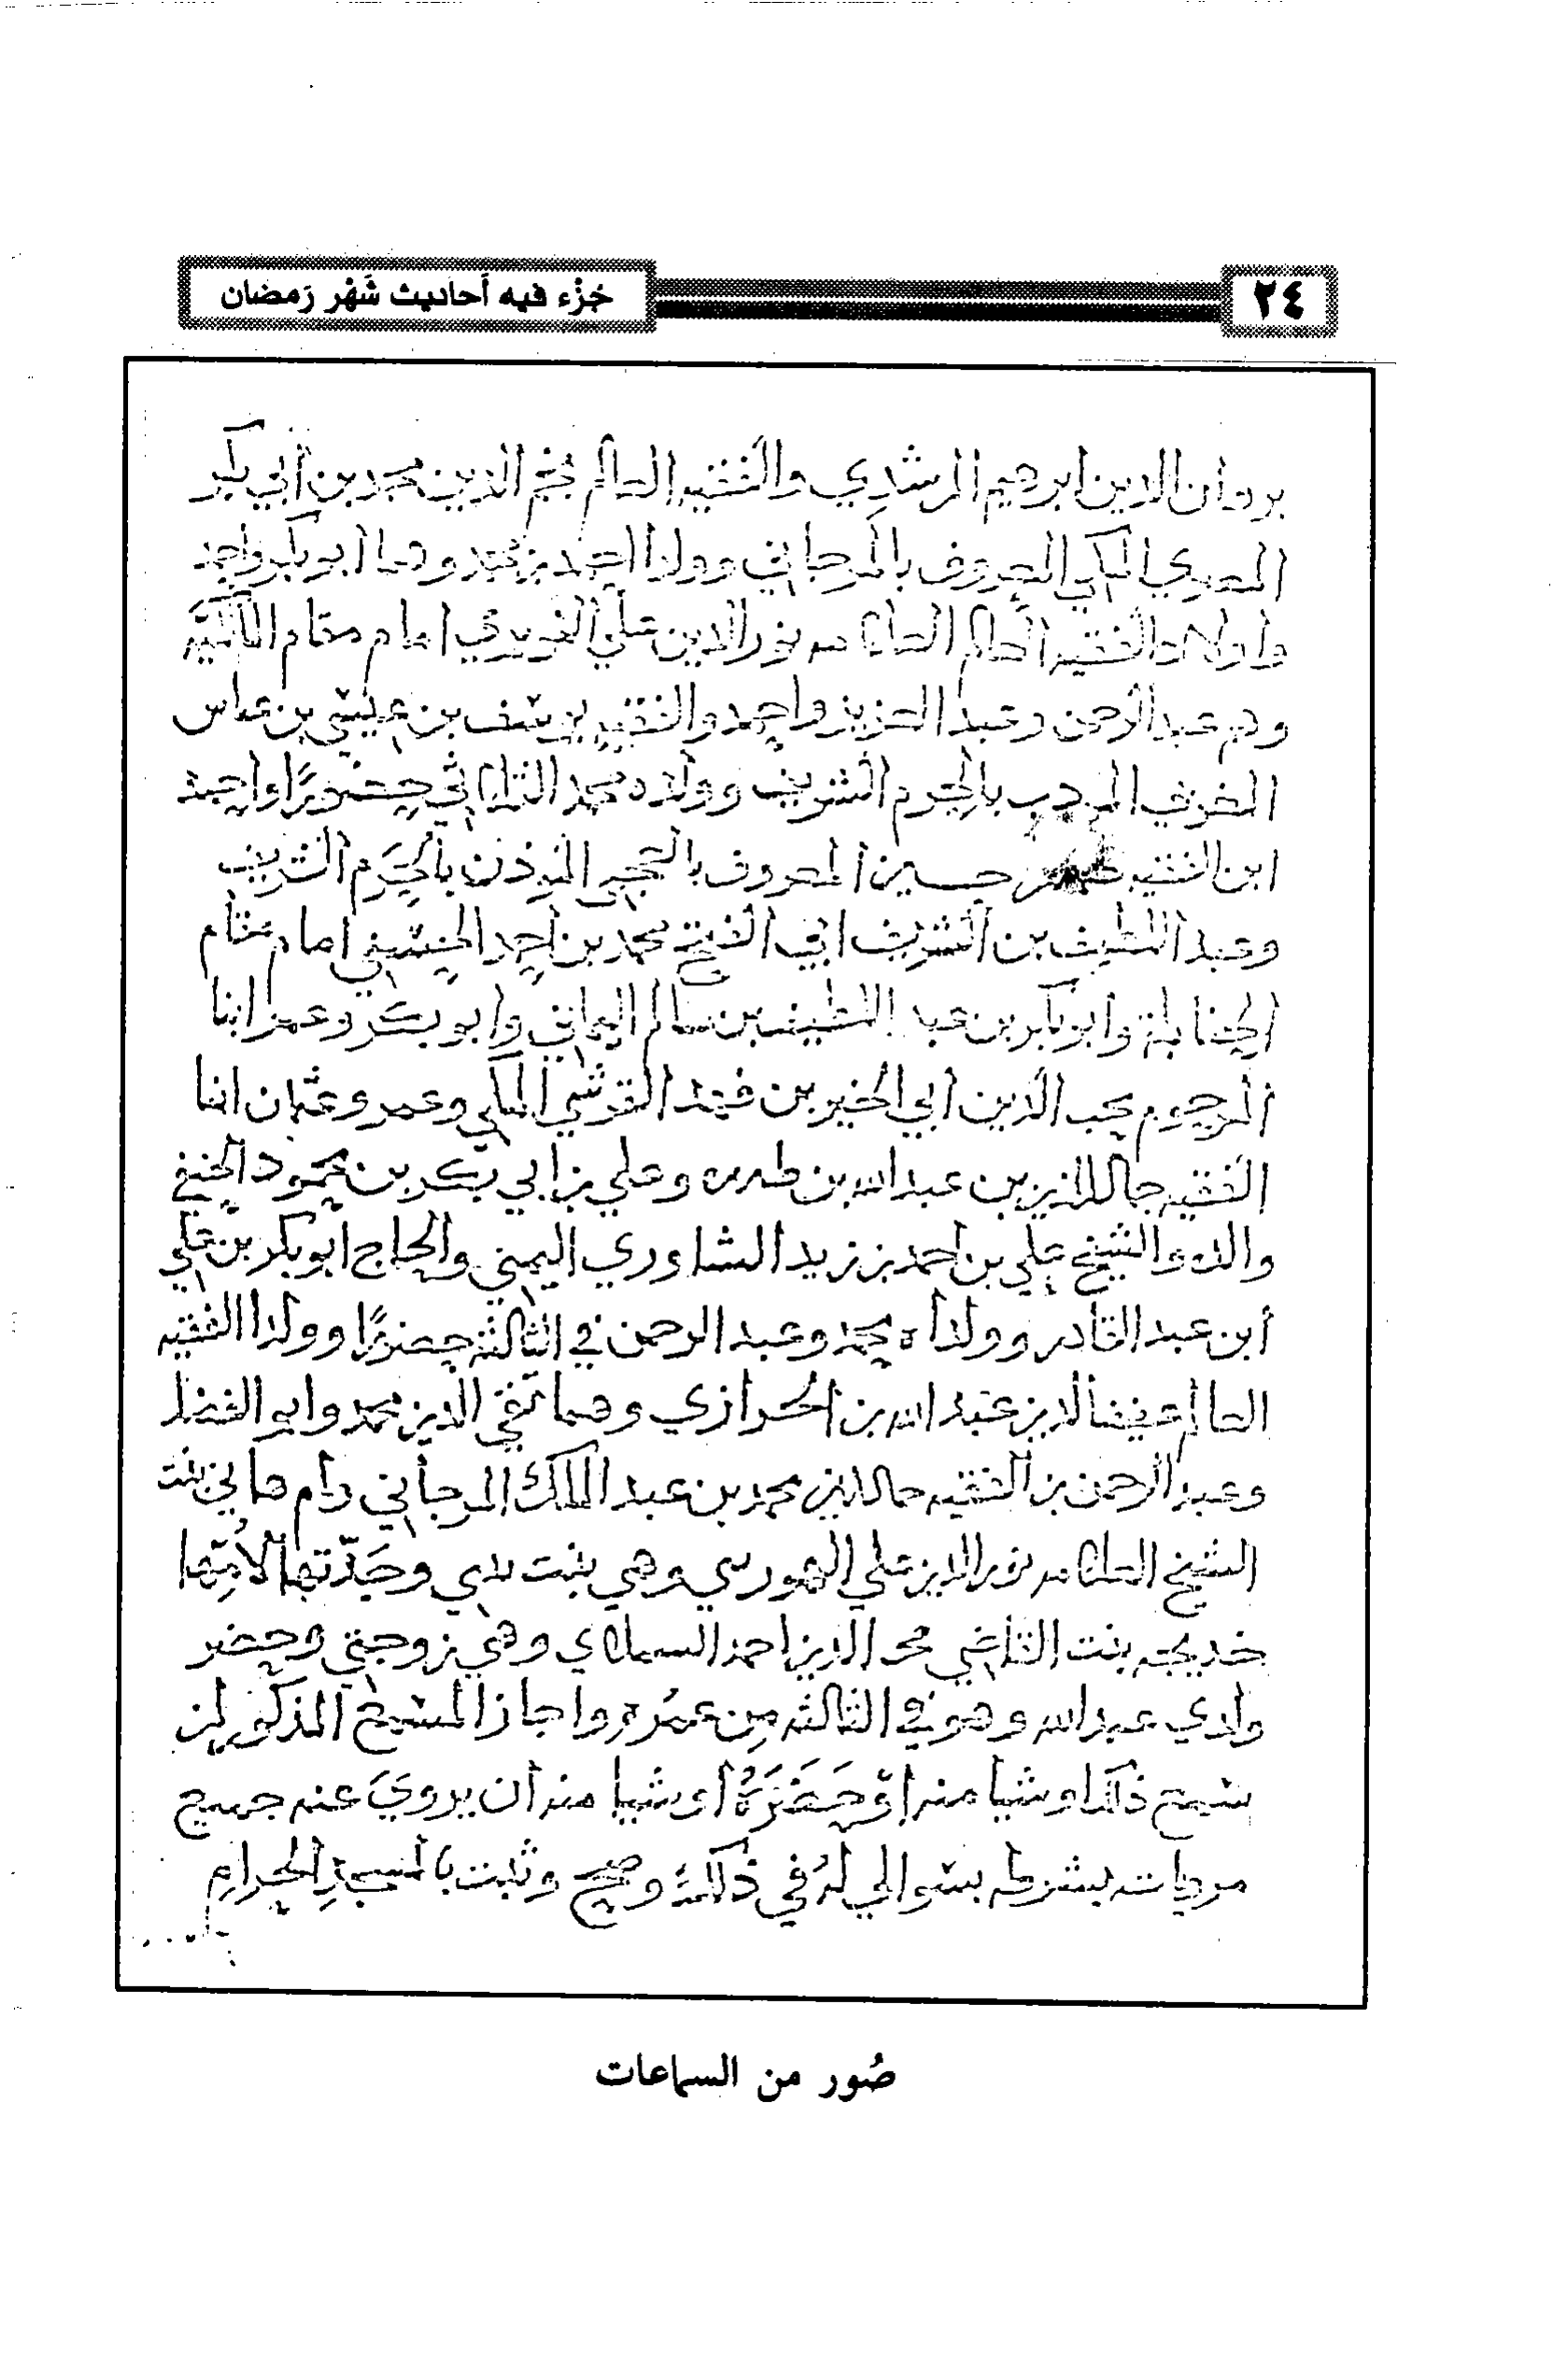 ٢٤
جُزْء فيه أحاديث شَهْر رَمضان
برهان الدين ابرهيم المرشدي والفقيه العالم نجم الدين محمد بن أبي بكر
المصري المكي المعروف بالمرجاني وولدا احمد بن محمد وهما أبو بكر واحمد
وأولاد الفقيه العالم العلامه نور الدين علي النويري امام مقام المالكية
وهم عبد الرحمن وعبد العزيز واحمد والفقيه يوسف بن عيسى بن عباس
المودب بالحرم الشريف وولده محمد حضورًا واحمد
ابن الفقيه حسين المعروف المؤذن بالحَرَم الشريف
وعبد اللطيف بن الشريف ابي الفتح محمد بن أحمد الحسني امام مقام
الحنابلة وأبو بكر بن عبد اللطيف بن سالم اليماني وابو بكر وعمر ابنا
المرحوم محب الدين أبي الخير بن فهد القرشي المكي وعمر وعثمان ابنا
الفقيه جمال الدين بن عبد الله بن ظهيره وعلي بن ابي بكر بن محمود الحنفي
والده والشيخ علي بن احمد بن زيد الشاوري اليمني والحاج ابو بكر بن علي
أبن عبد القادر وولداه محمد وعبد الرحمن في الثالثه حضورًا وولدا الفقيه
العالم عفيف الدين عبد الله بن الحرازي وهما تقي الدين محمد وابو الفضل
وعبد الرحمن بن الفقيه جمال الدين محمد بن عبد الملك المرجاني وأم هاني بنت
الشيخ العلامه نور الدين علي وهي بنت وجَدّتها لأمِّها
خديجه بنت القاضي الدين احمد وهي زوجتي وحضر
ولدي عبد الله وهو في الثالثه مِن عمُرهِ واجاز المسمع المذكور لمن
سمع ذلك او شيأ منه اوْ حَضَرَهُ أو شيأ منه أن يرويَ عنه جميع
مروياته بشرطه بسوالي لهُ في ذلك وصح وثبت بالمسجدِ الحرامِ
صُور من السماعات